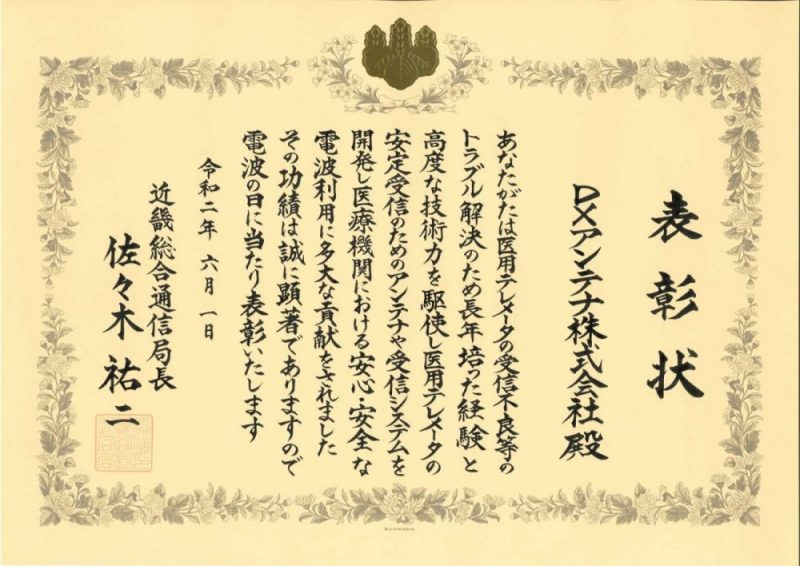 表彰状
DXアンテナ株式会社殿
あなたがたは医用テレメータの受信不良等の
トラブル解決のため長年培った経験と
高度な技術力を駆使し医用テレメータの
安定受信のためのアンテナや受信システムを
開発し医療機関における安心・安全な
電波利用に多大な貢献をされました
その功績は誠に顕著でありますので
電波の日に当たり表彰いたします
令和二年六月一日
近畿総合通信局長
佐々木祐二